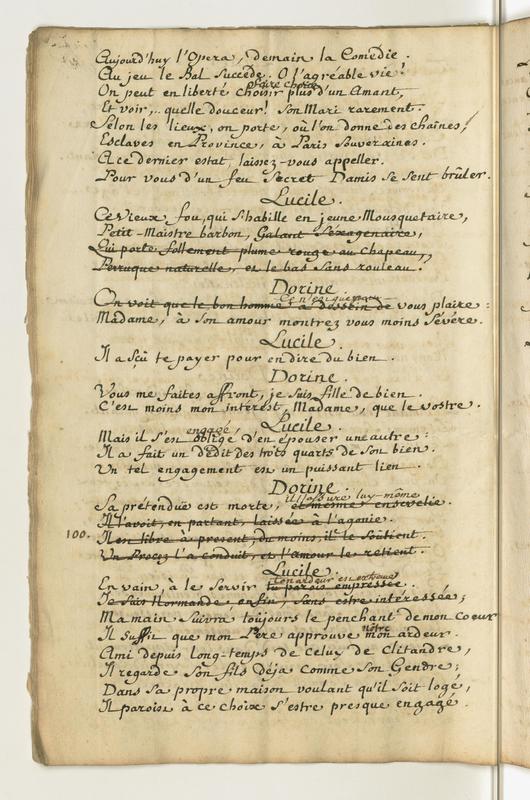 Aujourd'huy l'Opera, demain la Comédie.
Au jeu le Bal Succéde. O l'agréable vie!
faire choix
On peut en liberté choisir plus d'un Amant,
Et voir,.. quelle douceur! Son Mari rarement.
Selon les lieux, on porte, où l'on donne des chaînes,
Esclaves en Province, à Paris Souveraines.
A ce dernier estat, laissez-vous appeller.
Pour vous d'un feu Secret Damis Se Sent brûler.
Lucile.
Ce Vieux fou, qui S'habille en jeune Mousquetaire,
Petit-Maistre barbon, Galant Sexagenaire,
Qui porte follement plume rouge au Chapeau,
Perruque naturelle, et le bas Sans rouleau.
Dorine.
Ce n'est que pour
On voit que le bon homme a dessein de vous plaire:
Madame, à Son amour montrez vous moins Sévére.
Lucile.
Il a Sçû te payer pour en dire du bien.
Dorine.
Vous me faites affront, je Suis fille de bien.
C'est moins mon interest, Madame, que le vostre.
Lucile.
engagé,
Mais il S'est obligé d'en épouser une autre:
Il a fait un dédit des trois quarts de Son bien.
Un tel engagement est un puissant lien.
Dorine.
Il l'assure luy-même
Sa prétenduë est morte, et mesme ensevelie.
Il l'avoit, en partant, laissée à l'agonie.
100. Il est libre à present, du moins, il le Soûtient.
Un Procez l'a conduit, et l'amour le retient.
Lucile.
ton ardeur est extreme
En vain, à le Servir tu parois empressée.
Je Suis Normande, enfin, Sans estre interessée;
Ma main Suivra toujours le penchant de mon coeur
nôtre
Il Suffit que mon Pere approuve mon ardeur.
Ami depuis long-temps de Celuy de Clitandre,
Il regarde Son fils déja Comme Son Gendre;
Dans Sa propre maison voulant qu'il Soit logé,
Il paroist à ce choix S'estre presque engagé.